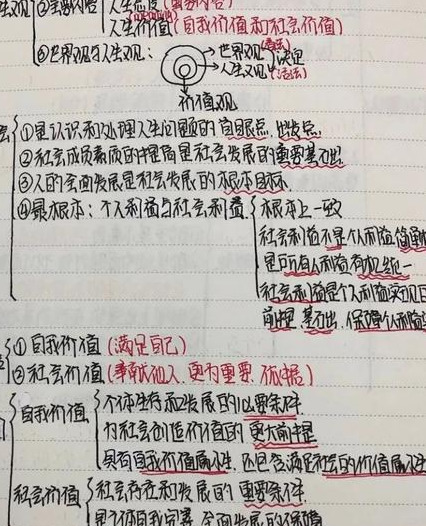 人生观 ②主要内容 人生态度 (重要内容)
人生价值 (自我价值和社会价值)
③世界观与人生观: 世界观 (看法) 决定
人生观 (活法)
价值观
①是认识和处理人生问题的着眼点、出发点.
②社会成员素质的提高是社会发展的重要基础.
③人的全面发展是社会发展的根本目标.
④最根本: 个人利益与社会利益 根本上一致
社会利益不是个人利益简单相
是所有人利益有机统一
社会利益是个人利益实现的
前提 基础, 保障个人利益
①自我价值 (满足自己)
②社会价值 (奉献他人、更为重要、
自我价值 个体生存和发展的必要条件
为社会创造价值的 更大前提
具有自我价值属性, 还包含满足社会的价值属性
社会价值 社会存在和发展的 重要条件
是个体自我完善、全面发展的保障